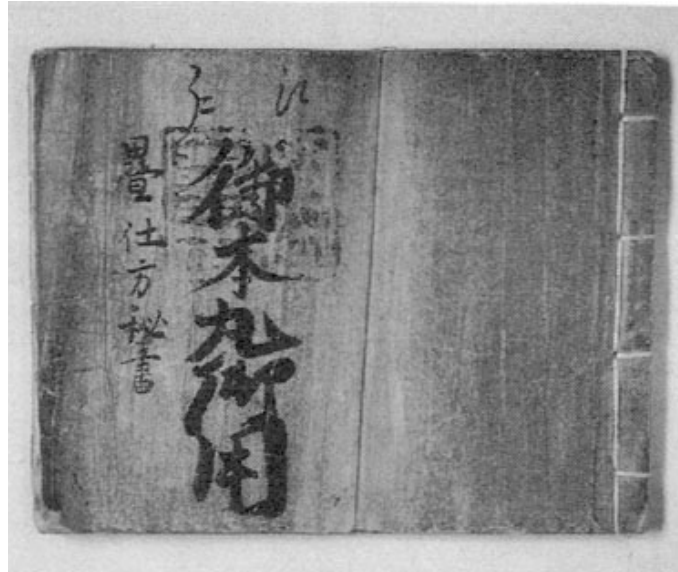 御本丸御用
畳仕方秘書